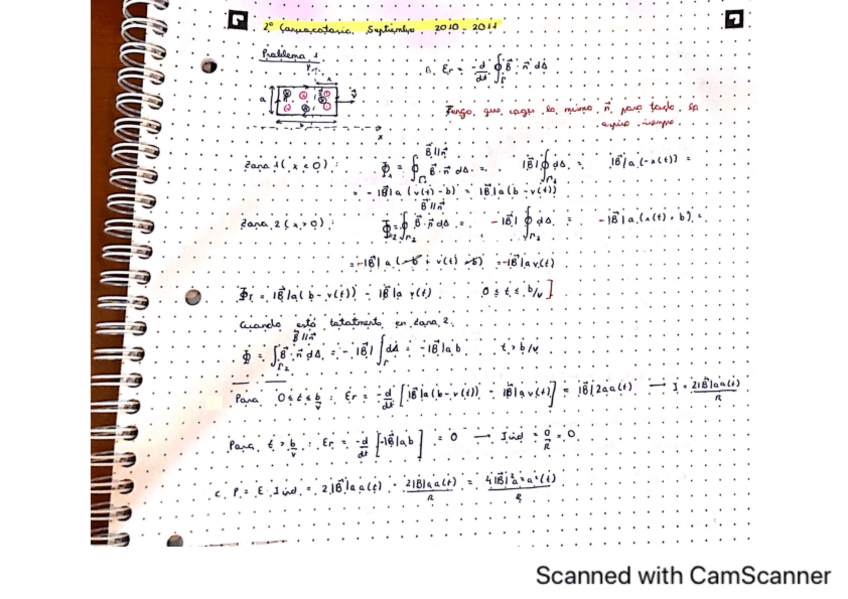 2ª Convocatoria. Septiembre 2010-2011
Problema 1
B. Er = -d/dt ∮Γ B⃗ · n⃗ dΔ
Tengo que coger la misma n⃗ para toda la
espira siempre
a
x
Zona 1 (x<0): Φ₁ = ∮Γ₁ B⃗ · n⃗ dΔ = |B⃗| ∮Γ₁ dΔ = |B⃗|a (-x(t)) =
B⃗ // n⃗
= -|B⃗|a (v(t) - b) = |B⃗|a(b - v(t))
B⃗ // n⃗
Zona 2 (x>0): Φ₂ = ∮Γ₂ B⃗ · n⃗ dΔ = -|B⃗| ∮Γ₂ dΔ = -|B⃗|a (x(t) + b) =
= -|B⃗|a (-b + v(t) + b) = -|B⃗|a v(t)
Φt = |B⃗|a(b - v(t)) - |B⃗|a v(t) 0 ≤ t ≤ b/v ]
Cuando está totalmente en Zona 2.
B⃗ // n⃗
Φ = ∫Γ₂ B⃗ · n⃗ dΔ = -|B⃗| ∫Γ dΔ = -|B⃗|ab t > b/v
Para 0≤t≤b/v : Er = -d/dt [|B⃗|a(b-v(t)) - |B⃗|a v(t)] = |B⃗|2aa(t) → I = 2|B⃗|aa(t)/R
Para t > b/v : Er = -d/dt [-|B⃗|ab] = 0 → Iind = 0/R = 0.
C. P = E · Iind = 2|B⃗|aa(t) · 2|B|aa(t)/R = 4|B⃗|²a²a²(t)/R
Scanned with CamScanner